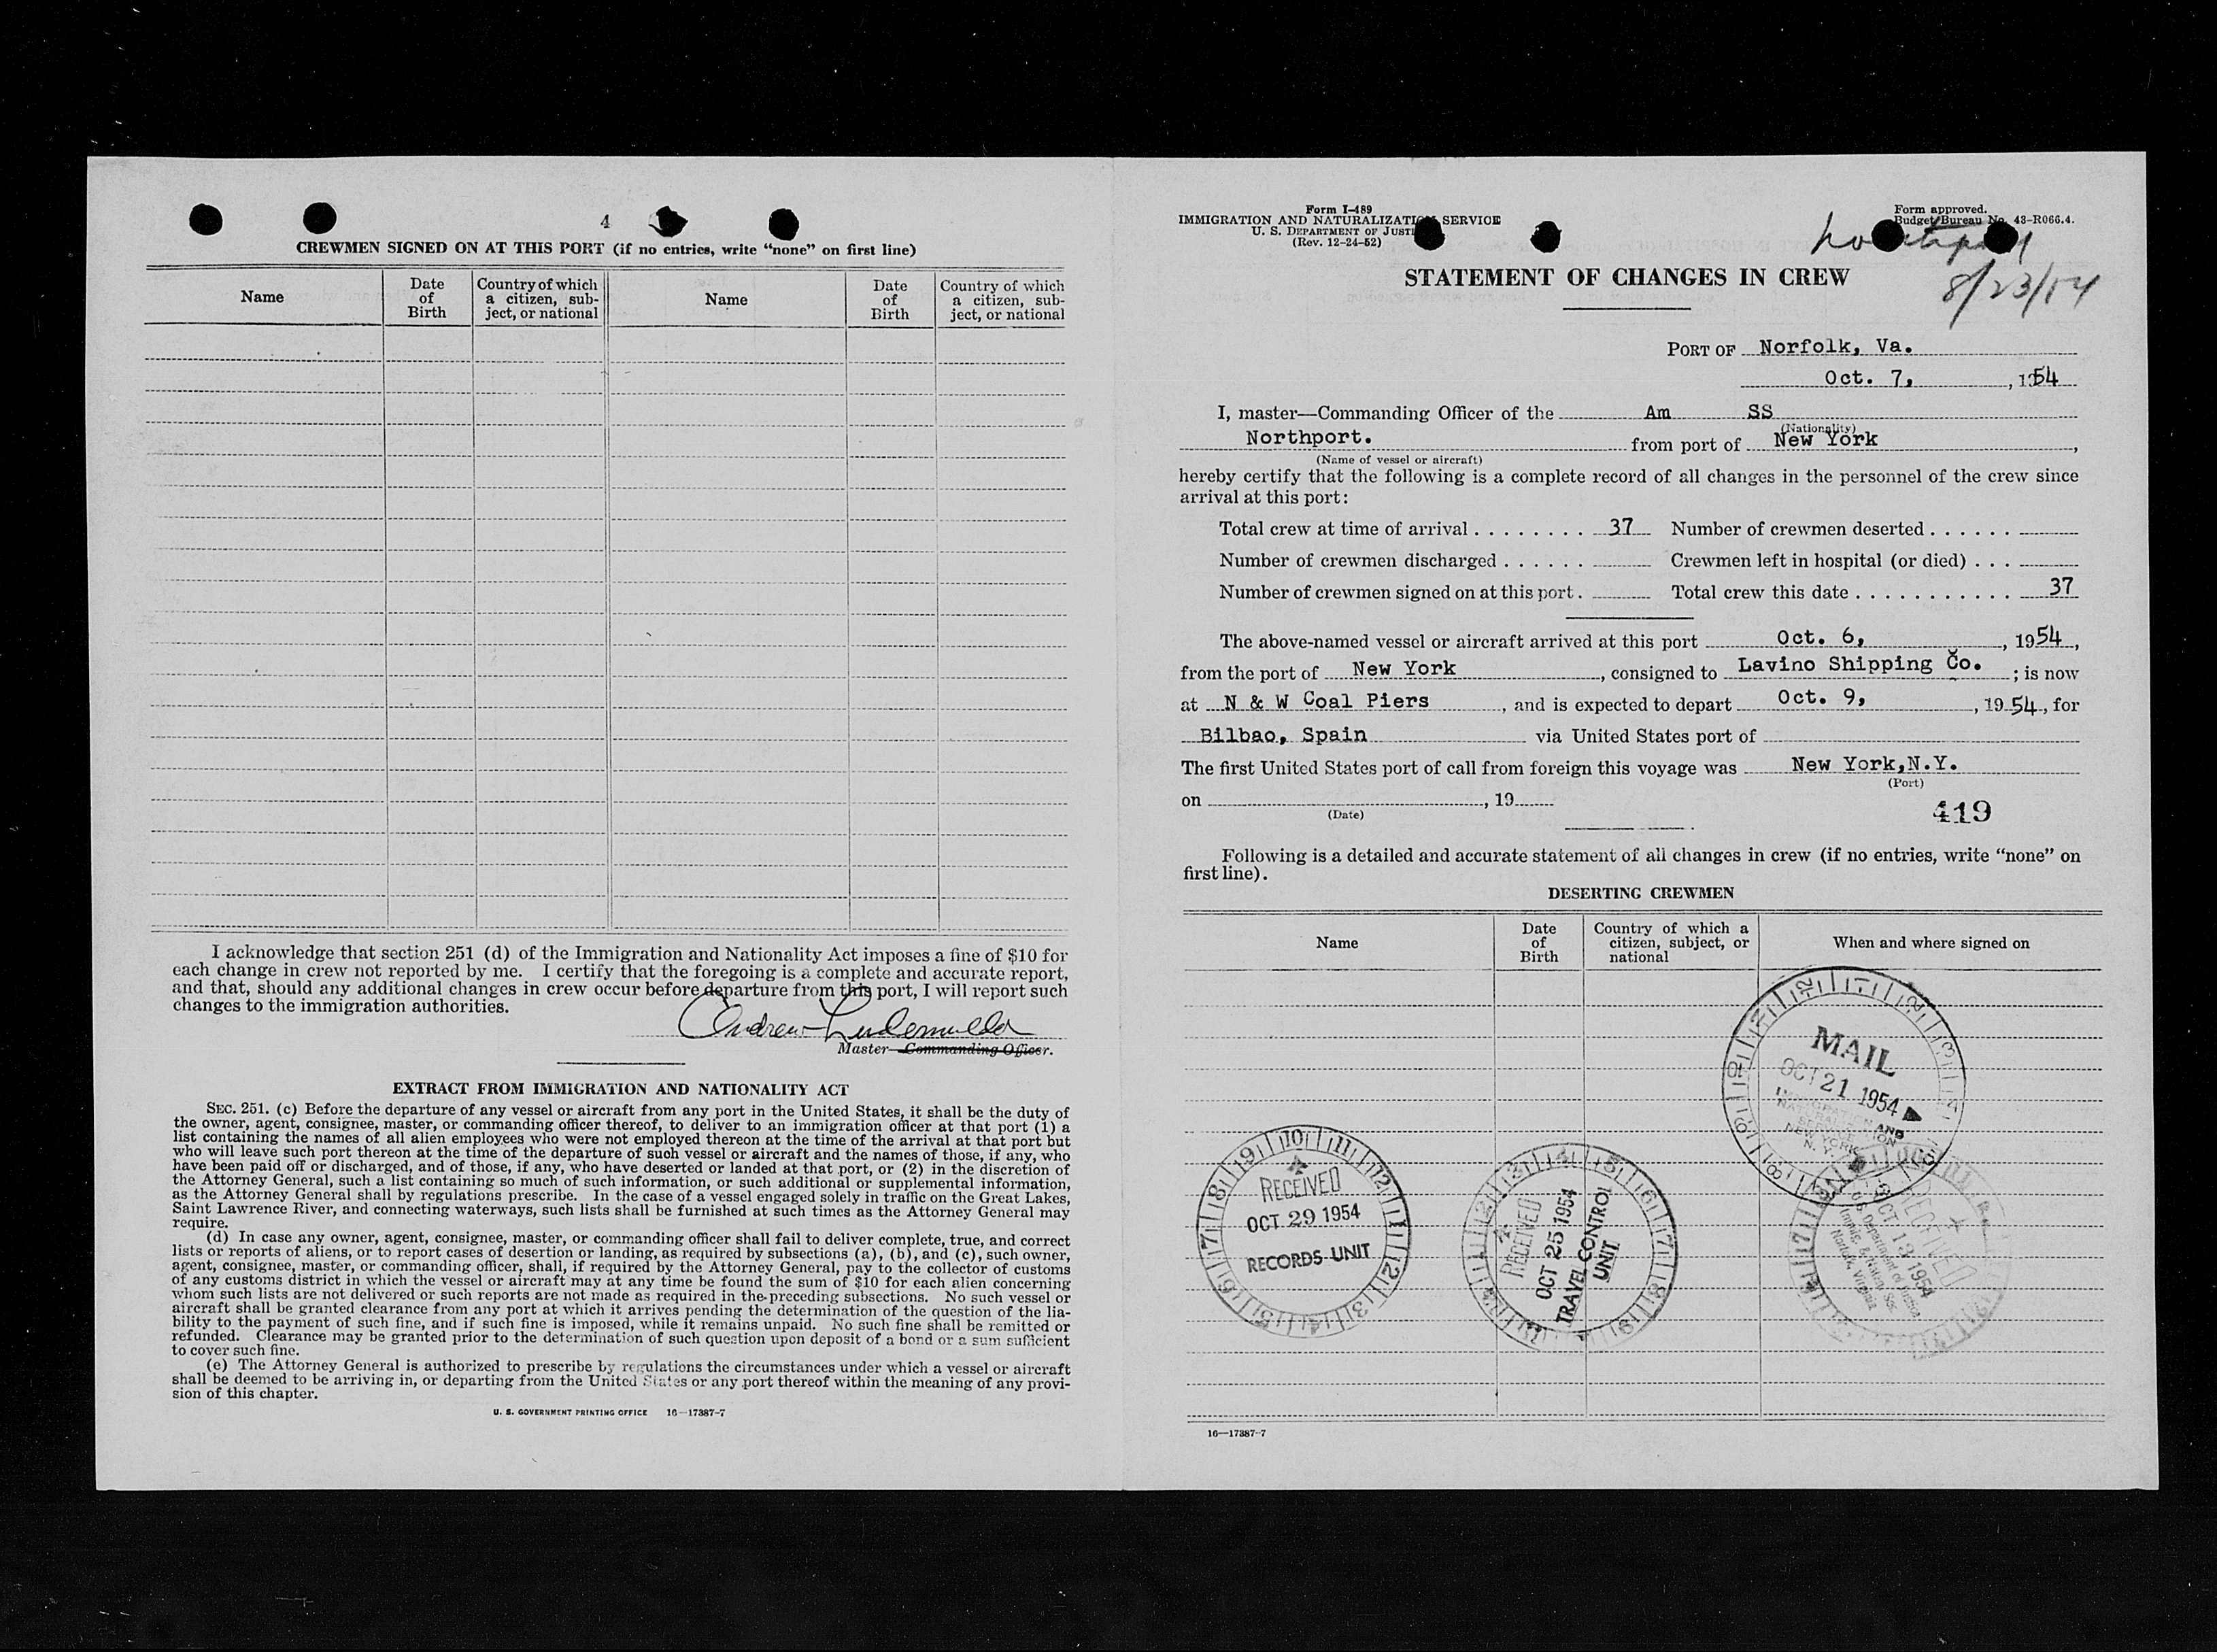 4
CREWMEN SIGNED ON AT THIS PORT (if no entries, write “none” on first line)
Name
Date of Birth
Country of which a citizen, subject, or national
Name
Date of Birth
Country of which a citizen, subject, or national
I acknowledge that section 251 (d) of the Immigration and Nationality Act imposes a fine of $10 for
each change in crew not reported by me. I certify that the foregoing is a complete and accurate report,
and that, should any additional changes in crew occur before departure from this port, I will report such
changes to the immigration authorities.
Andrew
Master—Commanding Officer.
EXTRACT FROM IMMIGRATION AND NATIONALITY ACT
SEC. 251. (c) Before the departure of any vessel or aircraft from any port in the United States, it shall be the duty of
the owner, agent, consignee, master, or commanding officer thereof, to deliver to an immigration officer at that port (1) a
list containing the names of all alien employees who were not employed thereon at the time of the arrival at that port but
who will leave such port thereon at the time of the departure of such vessel or aircraft and the names of those, if any, who
have been paid off or discharged, and of those, if any, who have deserted or landed at that port, or (2) in the discretion of
the Attorney General, such a list containing so much of such information, or such additional or supplemental information,
as the Attorney General shall by regulations prescribe. In the case of a vessel engaged solely in traffic on the Great Lakes,
Saint Lawrence River, and connecting waterways, such lists shall be furnished at such times as the Attorney General may
require.
(d) In case any owner, agent, consignee, master, or commanding officer shall fail to deliver complete, true, and correct
lists or reports of aliens, or to report cases of desertion or landing, as required by subsections (a), (b), and (c), such owner,
agent, consignee, master, or commanding officer, shall, if required by the Attorney General, pay to the collector of customs
of any customs district in which the vessel or aircraft may at any time be found the sum of $10 for each alien concerning
whom such lists are not delivered or such reports are not made as required in the preceding subsections. No such vessel or
aircraft shall be granted clearance from any port at which it arrives pending the determination of the question of the lia-
bility to the payment of such fine, and if such fine is imposed, while it remains unpaid. No such fine shall be remitted or
refunded. Clearance may be granted prior to the determination of such question upon deposit of a bond or a sum sufficient
to cover such fine.
(e) The Attorney General is authorized to prescribe by regulations the circumstances under which a vessel or aircraft
shall be deemed to be arriving in, or departing from the United States or any port thereof within the meaning of any provi-
sion of this chapter.
U. S. GOVERNMENT PRINTING OFFICE 16—17387-7
Form I-489
IMMIGRATION AND NATURALIZATION SERVICE
U. S. DEPARTMENT OF JUSTICE
(Rev. 12-24-52)
Form approved.
Budget Bureau No. 43-R066.4.
STATEMENT OF CHANGES IN CREW
PORT OF Norfolk, Va.
Oct. 7, , 1954
I, master—Commanding Officer of the Am SS
(Nationality)
Northport. from port of New York ,
(Name of vessel or aircraft)
hereby certify that the following is a complete record of all changes in the personnel of the crew since
arrival at this port:
Total crew at time of arrival . . . . . . . . 37 Number of crewmen deserted . . . . . .
Number of crewmen discharged . . . . . . Crewmen left in hospital (or died) . . .
Number of crewmen signed on at this port . Total crew this date . . . . . . . . . . . 37
The above-named vessel or aircraft arrived at this port Oct. 6, , 1954 ,
from the port of New York , consigned to Lavino Shipping Co. ; is now
at N & W Coal Piers , and is expected to depart Oct. 9, , 1954 , for
Bilbao, Spain via United States port of
The first United States port of call from foreign this voyage was New York,N.Y.
(Port)
on , 19
(Date)
419
Following is a detailed and accurate statement of all changes in crew (if no entries, write “none” on
first line).
DESERTING CREWMEN
Name
Date of Birth
Country of which a citizen, subject, or national
When and where signed on
MAIL
OCT 21 1954
IMMIGRATION AND
NATURALIZATION
SERVICE
NEW YORK
N. Y.
RECEIVED
OCT 29 1954
RECORDS UNIT
RECEIVED
OCT 25 1954
TRAVEL CONTROL
UNIT
RECEIVED
OCT 13 1954
U.S. Department of Justice
Immig. & Natzn. Ser.
Norfolk, Virginia
16—17387-7